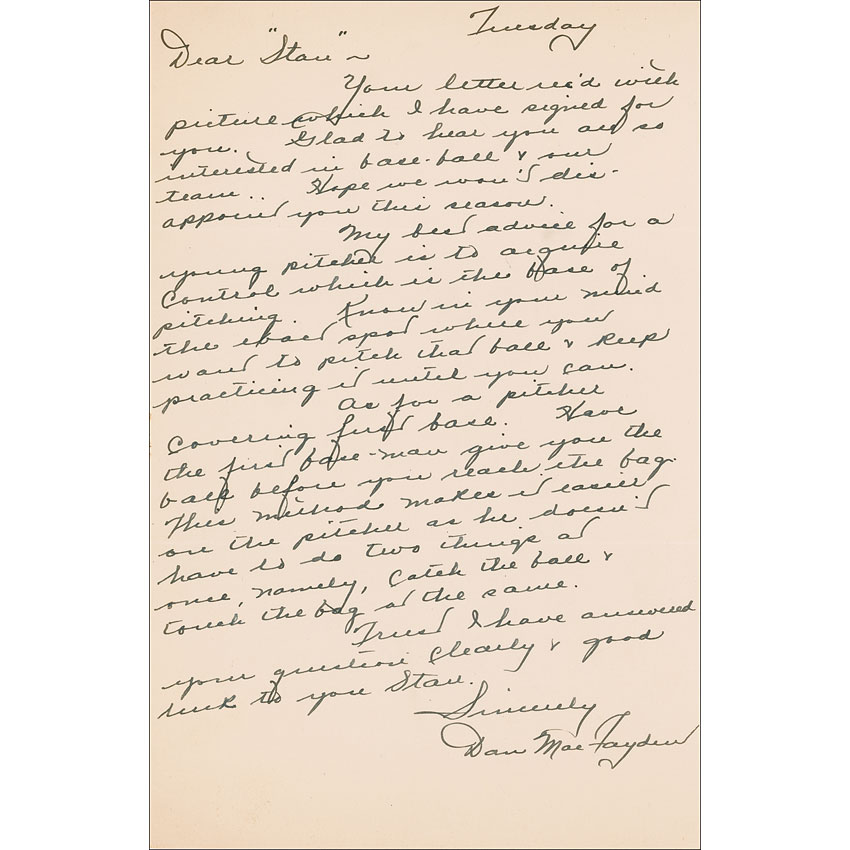 Tuesday
Dear "Stan" ~
Your letter rec'd with
picture which I have signed for
you. Glad to hear you are so
interested in base-ball & our
team.. Hope we won't dis-
appoint you this season.
My best advice for a
young pitcher is to acquire
Control which is the base of
pitching. Know in your mind
the exact spot where you
want to pitch that ball & keep
practicing it until you can.
As for a pitcher
Covering first base. Have
the first base-man give you the
ball before you reach the bag.
This method makes it easier
on the pitcher as he doesn't
have to do two things at
once, namely, Catch the ball &
touch the bag at the same.
Trust I have answered
your question Clearly & good
luck to you Stan.
Sincerely
Dan MacFayden